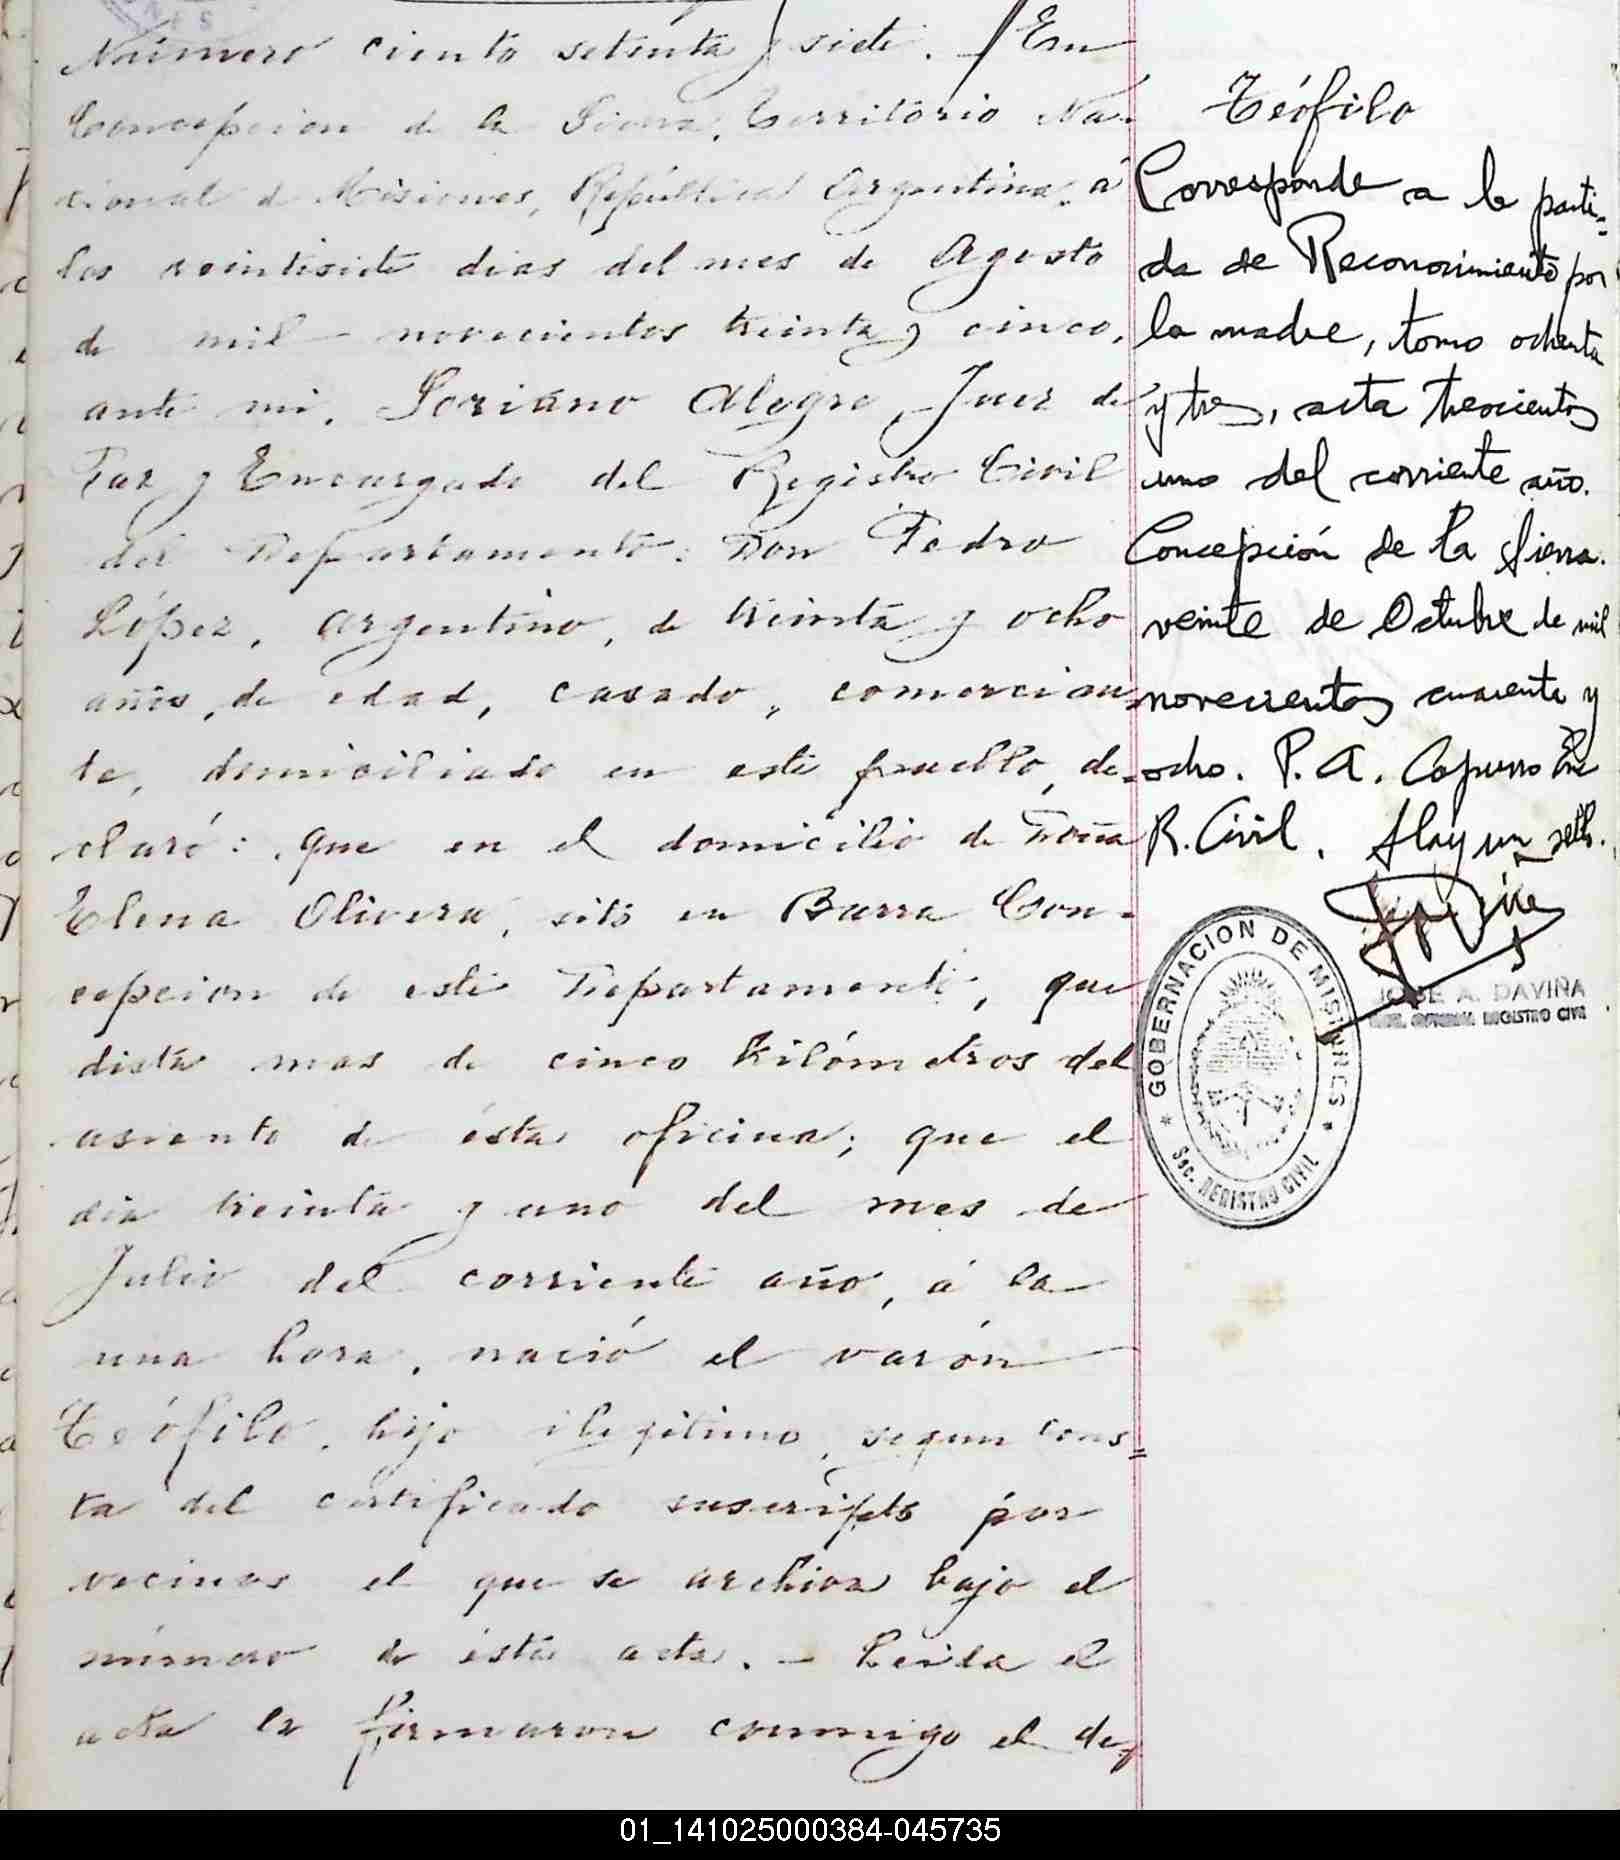 Número ciento setenta y siete. / En
Concepcion de la Sierra, Territorio Na-
cional de Misiones, República Argentina, á
los veintisiete dias del mes de Agosto
de mil novecientos treinta y cinco,
ante mi, Soriano Alegre, Juez de
Paz y Encargado del Registro Civil
del Departamento: Don Pedro
López, argentino, de treinta y ocho
años, de edad, casado, comercian-
te, domiciliado en este pueblo, de-
claró: que en el domicilio de Doña
Elena Olivera, sitó en Barra Con-
cepcion de este Departamento, que
dista mas de cinco kilómetros del
asiento de ésta oficina; que el
dia treinta y uno del mes de
Julio del corriente año, á la
una hora, nació el varón
Teófilo, hijo ilegitimo, segun cons=
ta del certificado suscripto por
vecinos el que se archiva bajo el
número de ésta acta. - Leida el
acta la firmaron conmigo el de=
Teófilo
Corresponde a la parti=
da de Reconocimiento por
la madre, tomo ochenta
y tres, acta trescientos
uno del corriente año.
Concepción de la Sierra.
veinte de Octubre de mil
novecientos cuarenta y
ocho. P. A. Capurro
R. Civil. Hay un sello.
GOBERNACION DE MISIONES
Sec. REGISTRO CIVIL
JOSE A. DAVIÑA
REGISTRO CIVIL
01_141025000384-045735